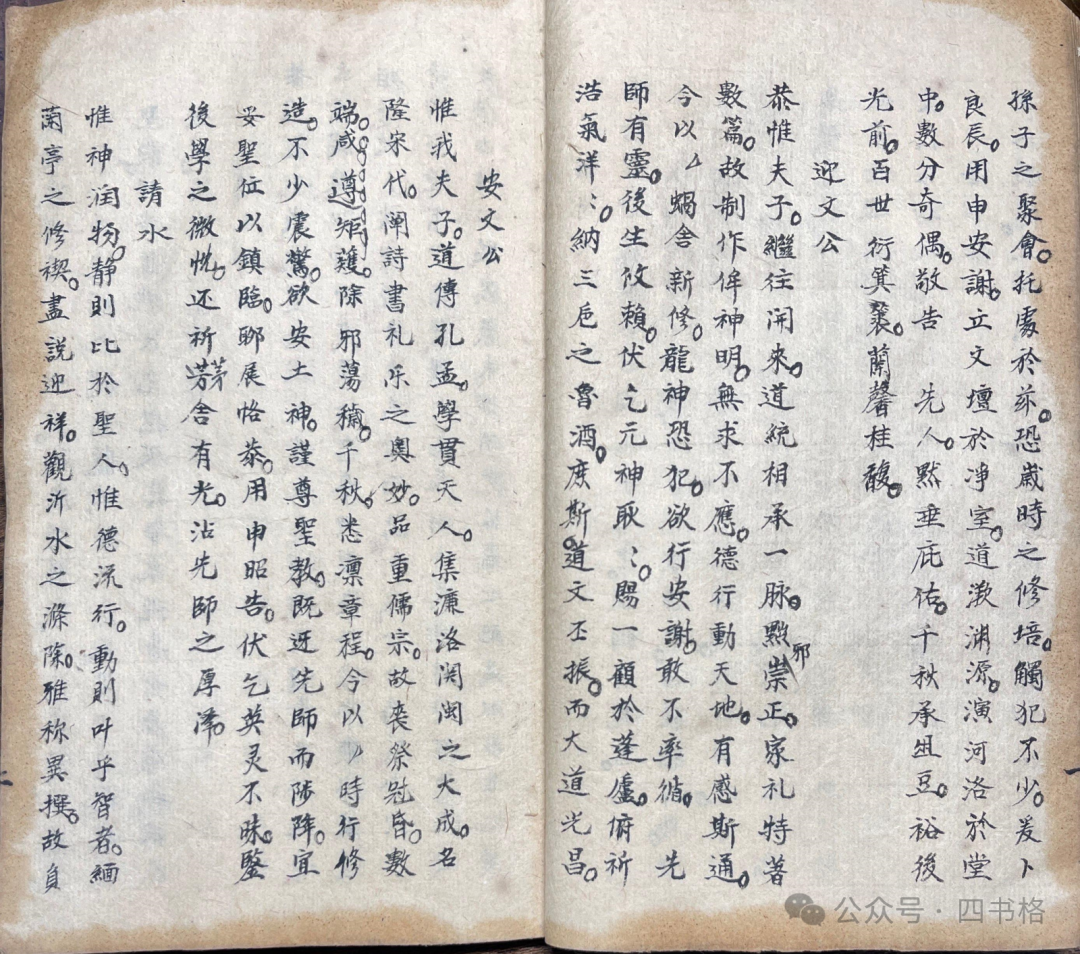 孫子之聚會。托處於茲。恐歲時之修培。觸犯不少。爰卜
良辰。用申安謝。立文壇於凈室。道澂渊源。演河洛於堂
中。數分奇偶。敬告　先人。黙垂庇佑。千秋承俎豆。裕後
光前。百世衍箕裘。蘭馨桂馥。
迎文公
恭惟夫子。繼往開來。道統相承一脉。黜邪崇正。家礼特著
數篇。故制作侔神明。無求不應。德行動天地。有感斯通。
今以　蝸舍新修。龍神恐犯。欲行安謝。敢不率循。先
師有靈。後生攸賴。伏乞元神耿〻。賜一顧於蓬廬。俯祈
浩氣洋〻。納三卮之魯酒。庶斯道文丕振。而大道光昌。
安文公
惟我夫子。道傳孔孟。學貫天人。集濂洛関閩之大成。名
隆宋代。阐詩書礼乐之奥妙。品重儒宗。故丧祭冠昏。數
端。咸遵矩矱。除邪蕩穢。千秋。悉凛章程。今以　時行修
造。不少震驚。欲安土神。謹尊聖教。既迓先師而陟降。宜
妥聖位以鎮臨。聊展恪恭。用申昭告。伏乞英灵不昧。鑒
後學之微忱。还祈茅舍有光。沾先師之厚澤。
請水
惟神润物。静則比於聖人。惟德流行。動則叶乎智者。緬
蘭亭之修禊。盡説迎祥。觀沂水之滌除。雅称異撰。故自
公众号 · 四书格